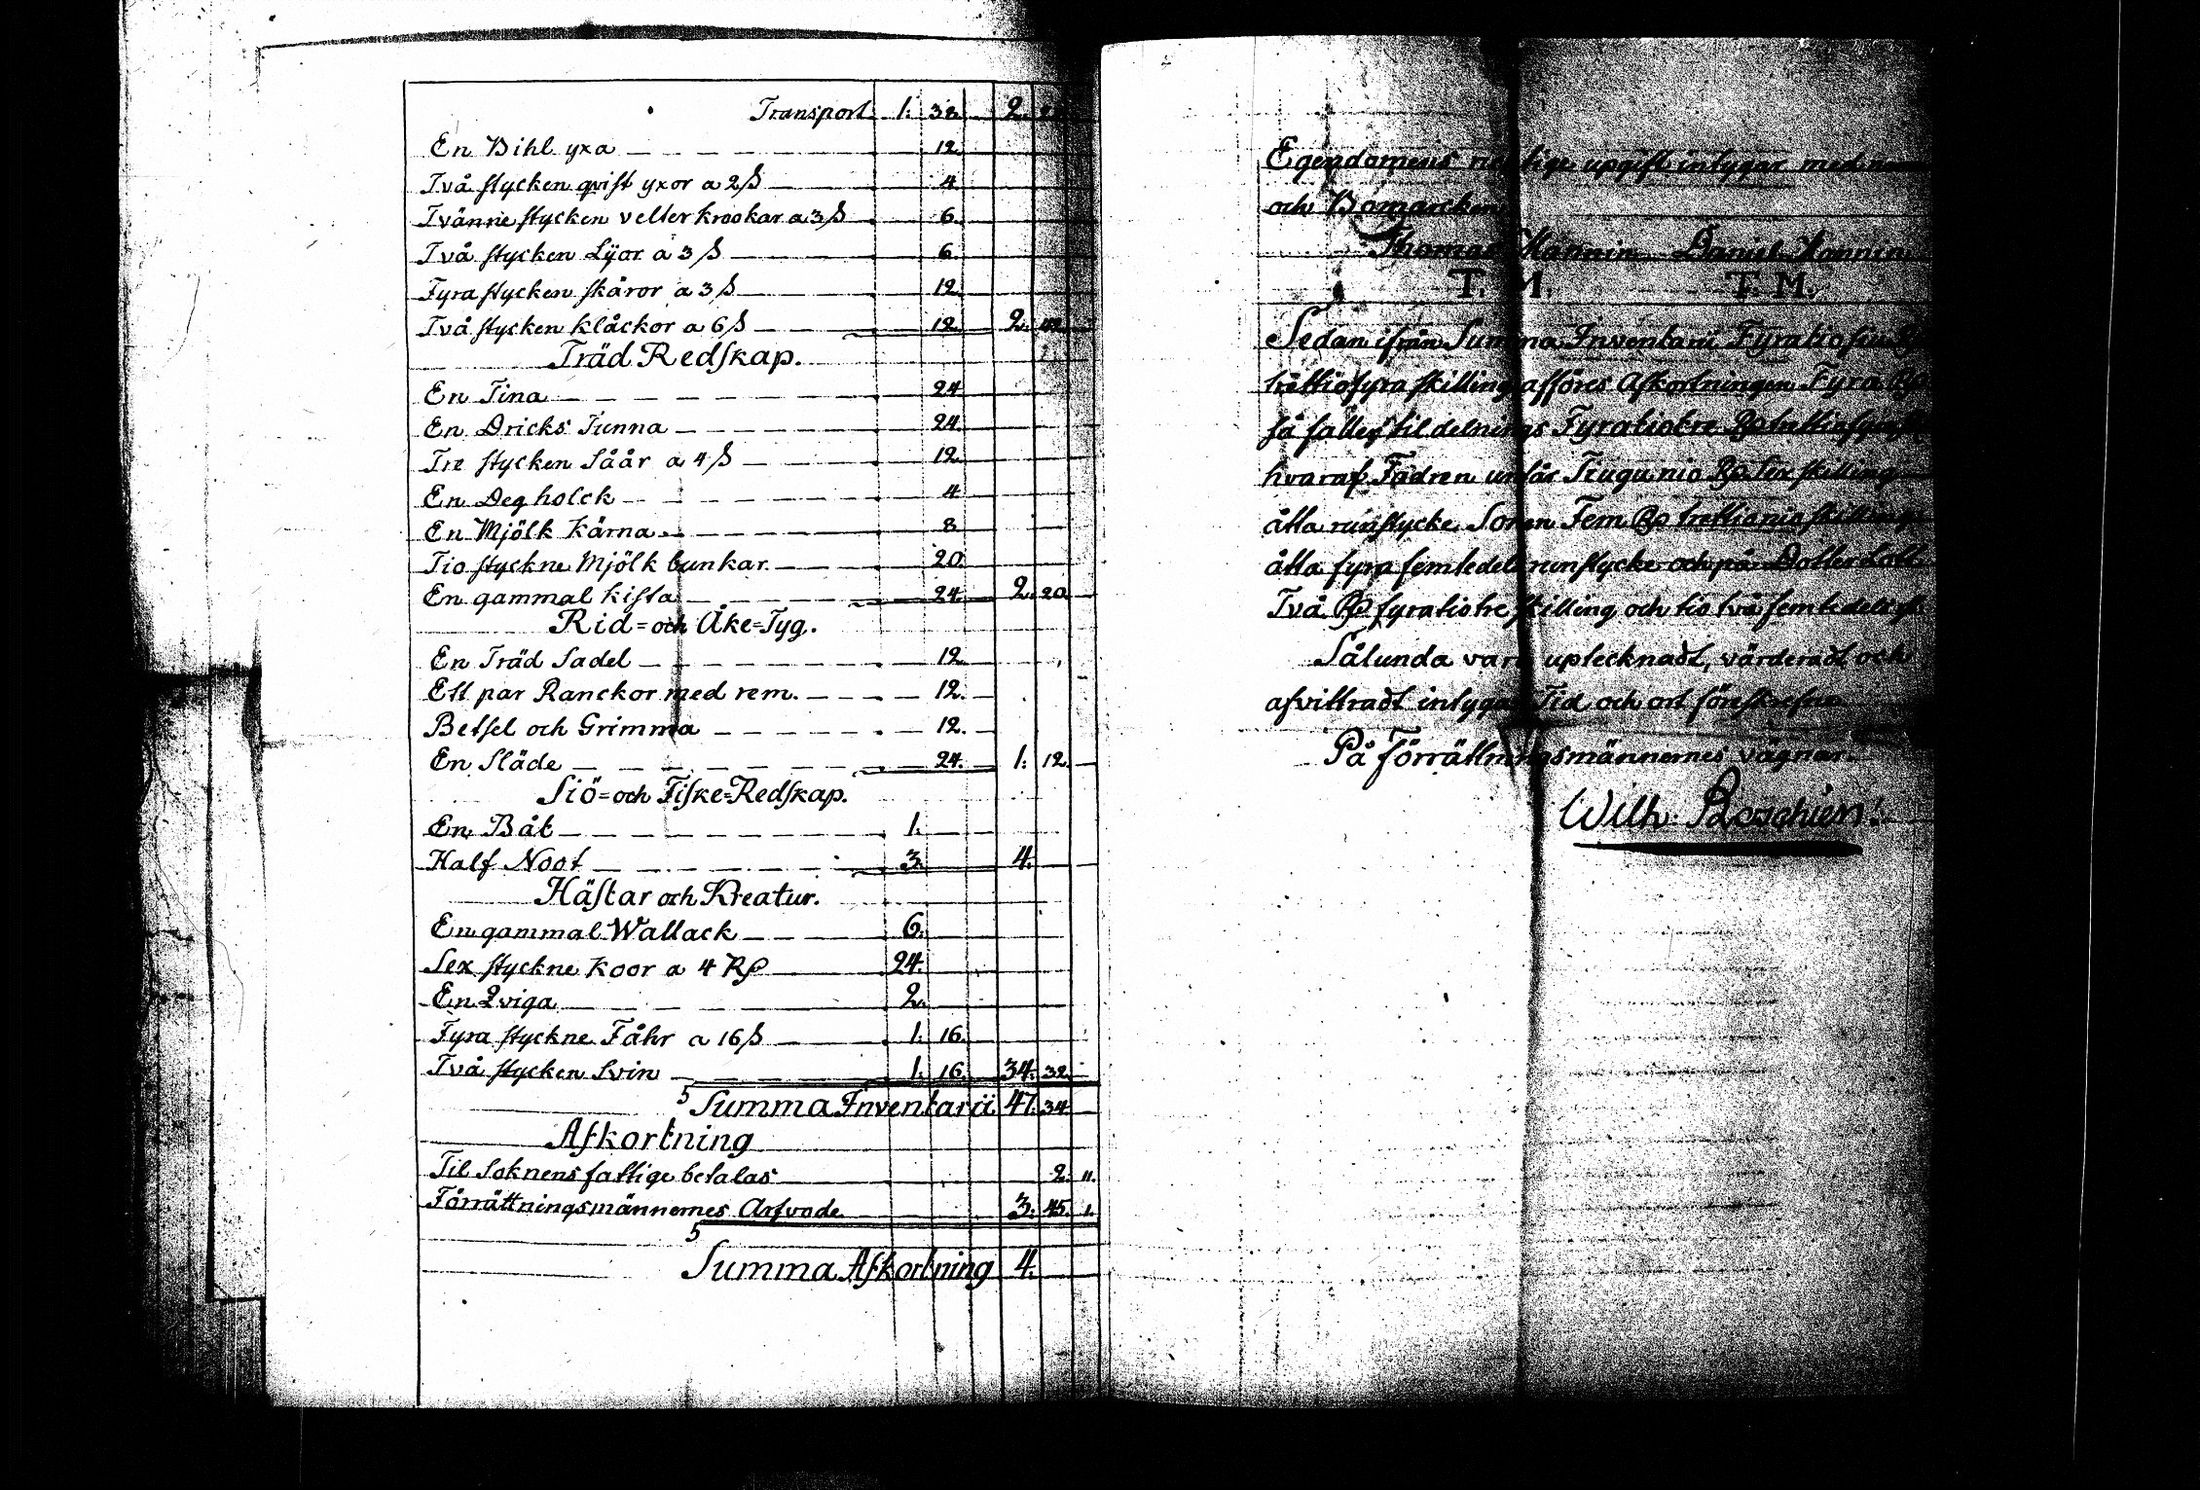 Transport 1. 38. 2.
En Bihl yxa — 12.
Två stycken qvist yxor a 2 ß — 4
Tvänne stycken veller krookar a 3 ß 6.
Två stycken Lÿor a 3 ß — 6.
Fyra stycken skäror a 3 ß — 12.
Två stycken klåckor a 6 ß — 12. 2.
Träd Redskap.
En Tina — 24
En Dricks Tunna — 24
Tre stycken Såår a 4 ß — 12.
En Deg holck — 4
En Mjölk Kärna — 8
Tio styckne Mjölk bunkar — 20.
En gammal kista — 24. 2. 20.
Rid=och Åke=Tyg.
En Träd Sadel — 12.
Ett par Ranckor med rem. — 12.
Betsel och Grimma — 12.
En Släde — 24. 1. 12.
Siö=och Fiske=Redskap.
En Båt — 1.
Half Noot — 3. 4.
Hästar och Kreatur.
En gammal Wallack — 6.
Sex styckne Koor a 4 Rp 24.
En Qviga 2.
Fyra styckne Fåhr a 16 ß — 1. 16.
Två stycken Svin — 1. 16. 34. 32.
Summa Inventarii 47. 34
Afkortning
Til Soknens fattige betalas 2. 11.
Förrättningsmännernes Arfvode 3. 45. 1.
Summa Afkortning 4.
Egendomens upgift intygar med
och Bomärcken
Thomas Männin Daniel
T. M. T. M.
Sedan ifrån Summa Inventarii Fyratiosju Rp
trettiofyra skilling afföres Afkortningen Fyra Rp
så faller til delnings Fyratiotre Rp trettiofyra
hvaraf Fadren undfår Tiugu nio Rp Sex skilling
åtta runstycke Sonen Fem Rp trettionio skilling
åtta fyra femtedels runstycke och på Dotter Lott
Två Rp fyratiotre skilling och tio två femtedels
Sålunda vara uptecknadt, värderadt och
afvittradt intygar Tid och ort föreskrefne
På Förrättningsmännernes vägnar.
Wilh.